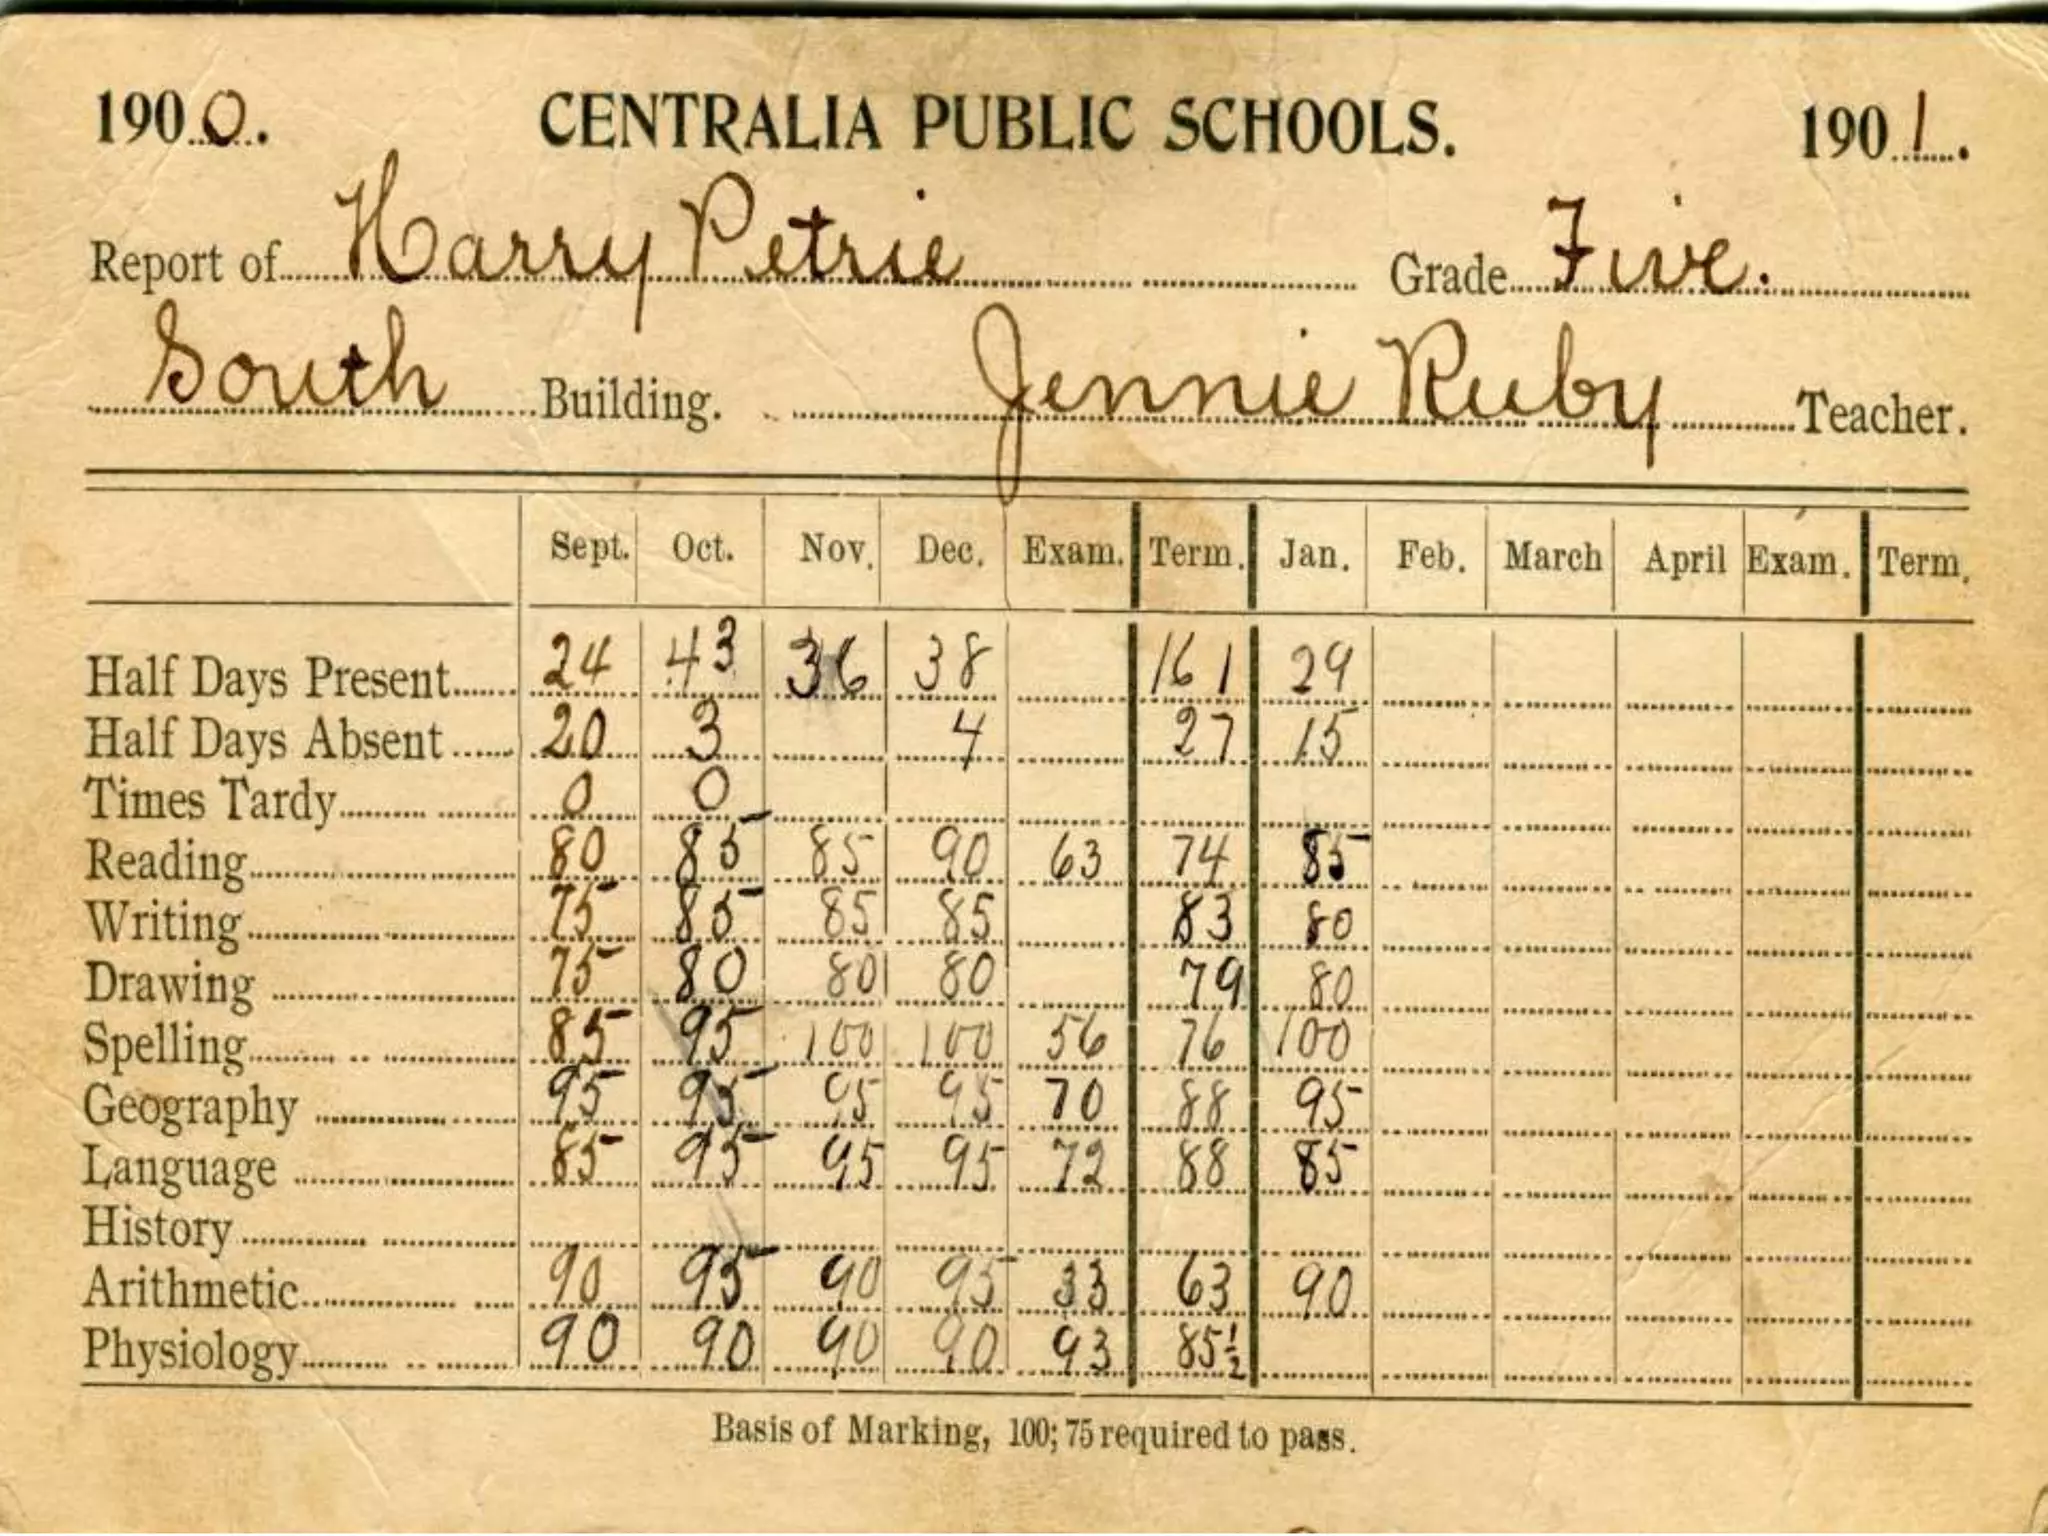 1900. CENTRALIA PUBLIC SCHOOLS. 1901.
Report of Harry Petrie Grade Five.
South Building. Jennie Ruby Teacher.
Sept. Oct. Nov. Dec. Exam. Term. Jan. Feb. March April Exam. Term.
Half Days Present 24 43 36 38 161 29
Half Days Absent 20 3 4 27 15
Times Tardy 0 0
Reading 80 85 85 90 63 74 85
Writing 75 85 85 85 83 80
Drawing 75 80 80 80 79 80
Spelling 85 95 100 100 56 76 100
Geography 95 95 95 95 70 88 95
Language 85 95 95 95 72 88 85
History
Arithmetic 90 95 90 95 33 63 90
Physiology 90 90 90 90 93 85½
Basis of Marking, 100; 75 required to pass.